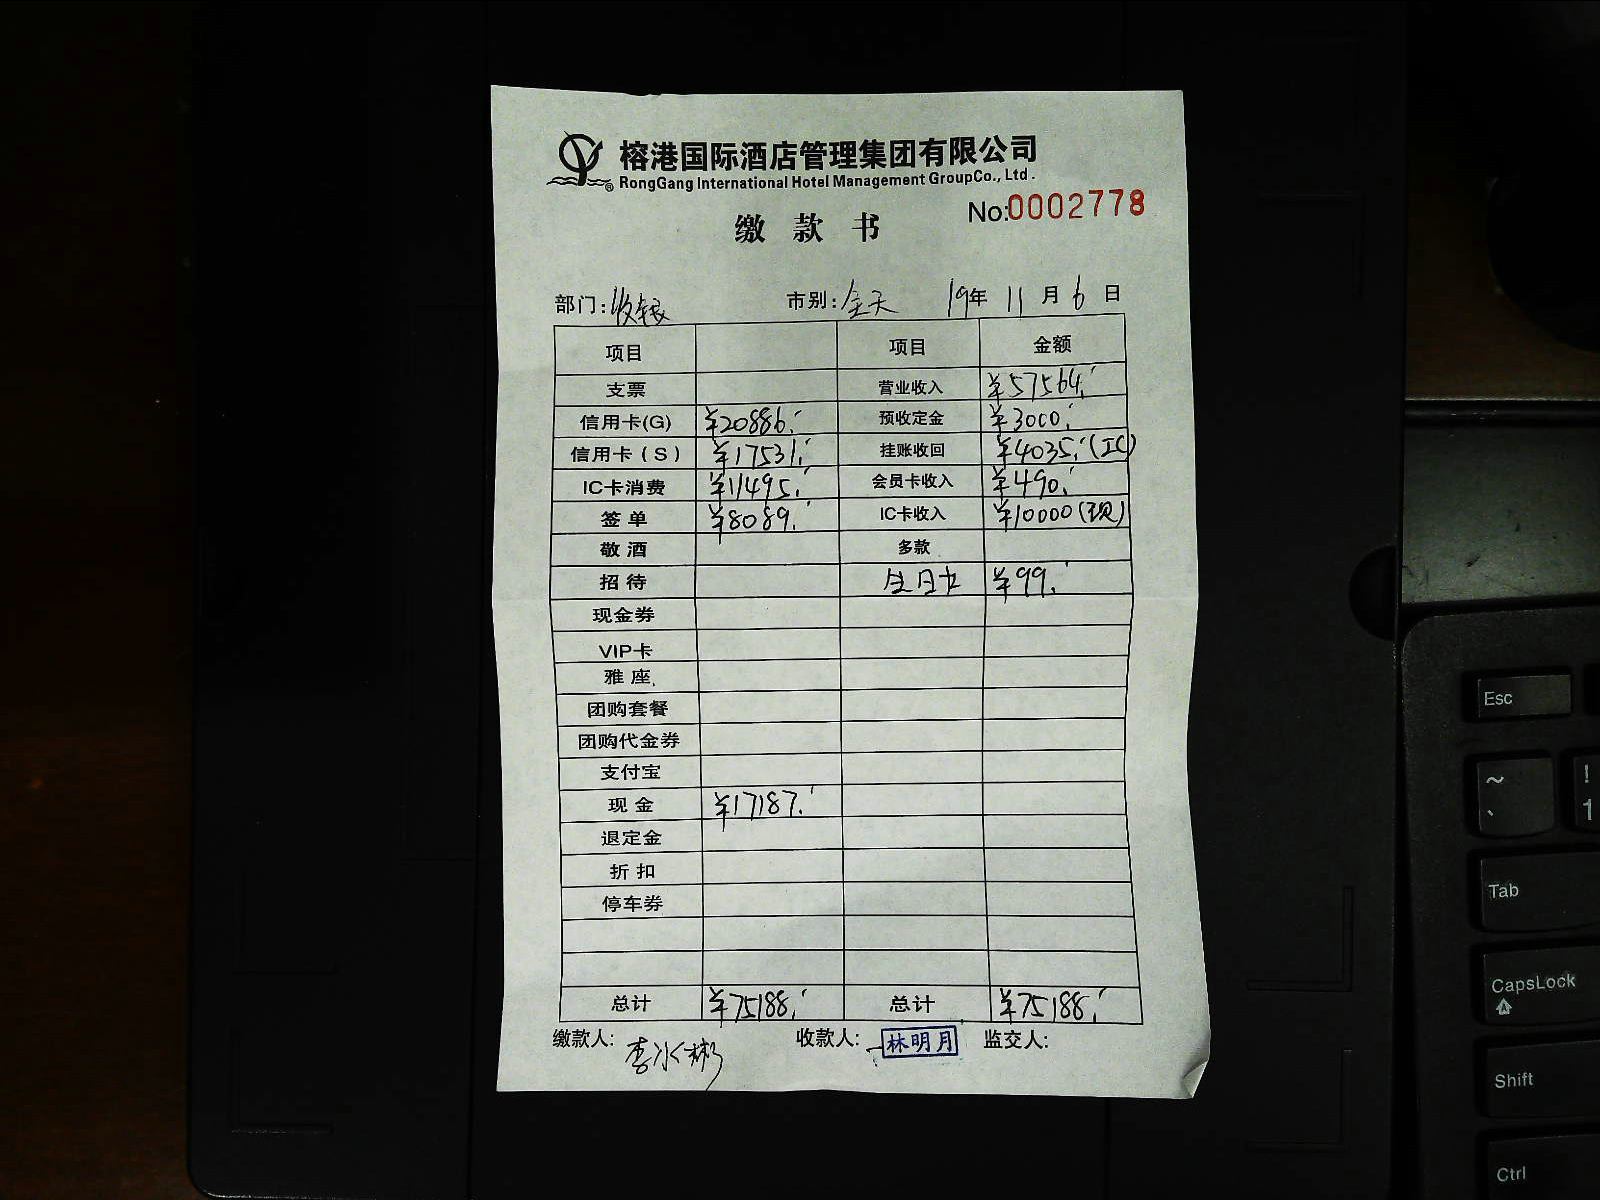 榕港国际酒店管理集团有限公司
RongGang International Hotel Management GroupCo., Ltd.
No:0002778
缴 款 书
部门:收银 市别:全天 19年 11月 6日
项目 项目 金额
支票 营业收入 ¥57564.
信用卡(G) ¥20886. 预收定金 ¥3000.
信用卡(S) ¥17531. 挂账收回 ¥4035.(IC)
IC卡消费 ¥11495. 会员卡收入 ¥490.
签单 ¥8089. IC卡收入 ¥10000(现)
敬酒 多款
招待 生日卡 ¥99.
现金券
VIP卡
雅座
团购套餐
团购代金券
支付宝
现金 ¥17187.
退定金
折扣
停车券
总计 ¥75188. 总计 ¥75188.
缴款人: 李冰彬 收款人: 林明月 监交人:
Esc
~
、
!
1
Tab
CapsLock
Shift
Ctrl